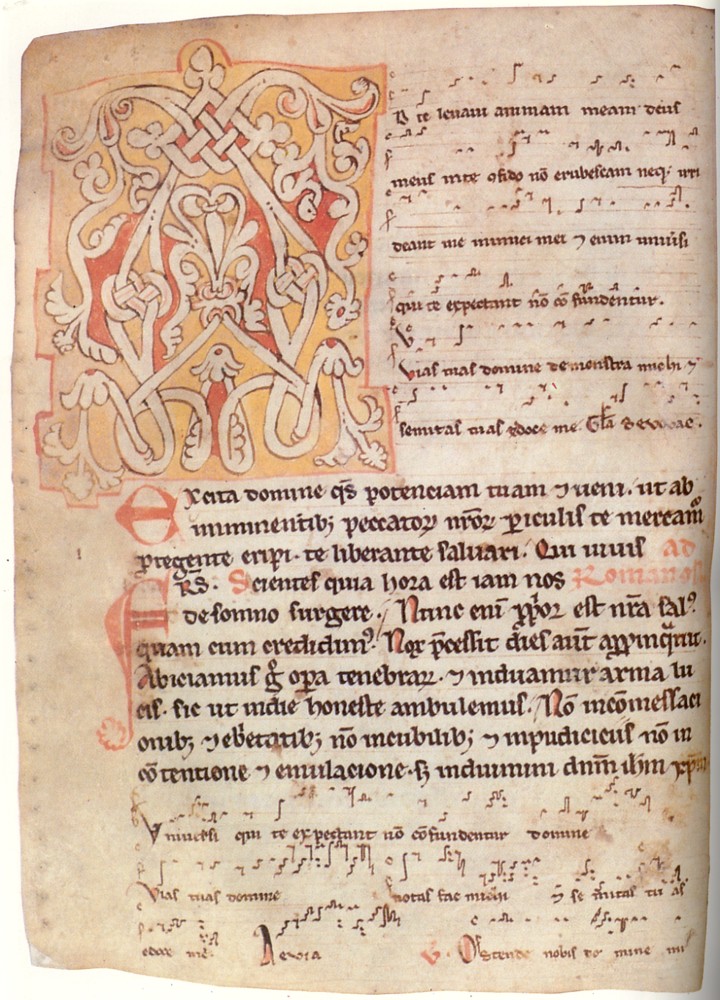 D te leuaui animam meam deus
meus inte ꝯfido nō erubescam neqꝫ irri
deant me inimici mei ⁊ enim uniu͛si
qui te expectant nō cōfundentur.
V
Vias tuas domine demonstra michi ⁊
semitas tuas edoce me. Gl̄a seuouae.
Excita domine qs̄ potenciam tuam ⁊ ueni. ut ab
imminentibꝫ peccatoꝝ nr̄oꝝ ꝑiculis te meream̄
ꝓtegente eripi. te liberante saluari. Qui uiuis ad
FRS̄. Scientes quia hora est iam nos Romanos
de somno surgere. Nunc eni ꝓpior est nr̄a salꝰ
quam cum credidimꝰ. Nox p̄cessit dies aūt appinquit.
Abiciamus g̊ oꝑa tenebraꝝ. ⁊ induamur arma lu
cis. sic ut indie honeste ambulemus. Nō incōmessaci
onibꝫ ⁊ ebrietatibꝫ nō incubilibꝫ ⁊ inpudicicus nō in
cōtentione ⁊ emulacione. sꝫ induimini dn̄m ih̄m xp̄m
Vniuersi qui te expectant nō cōfundentur domine
Vias tuas domine notas fac michi ⁊ semitas tuas
edoce me. Aeuia V. Ostende nobis domine mi